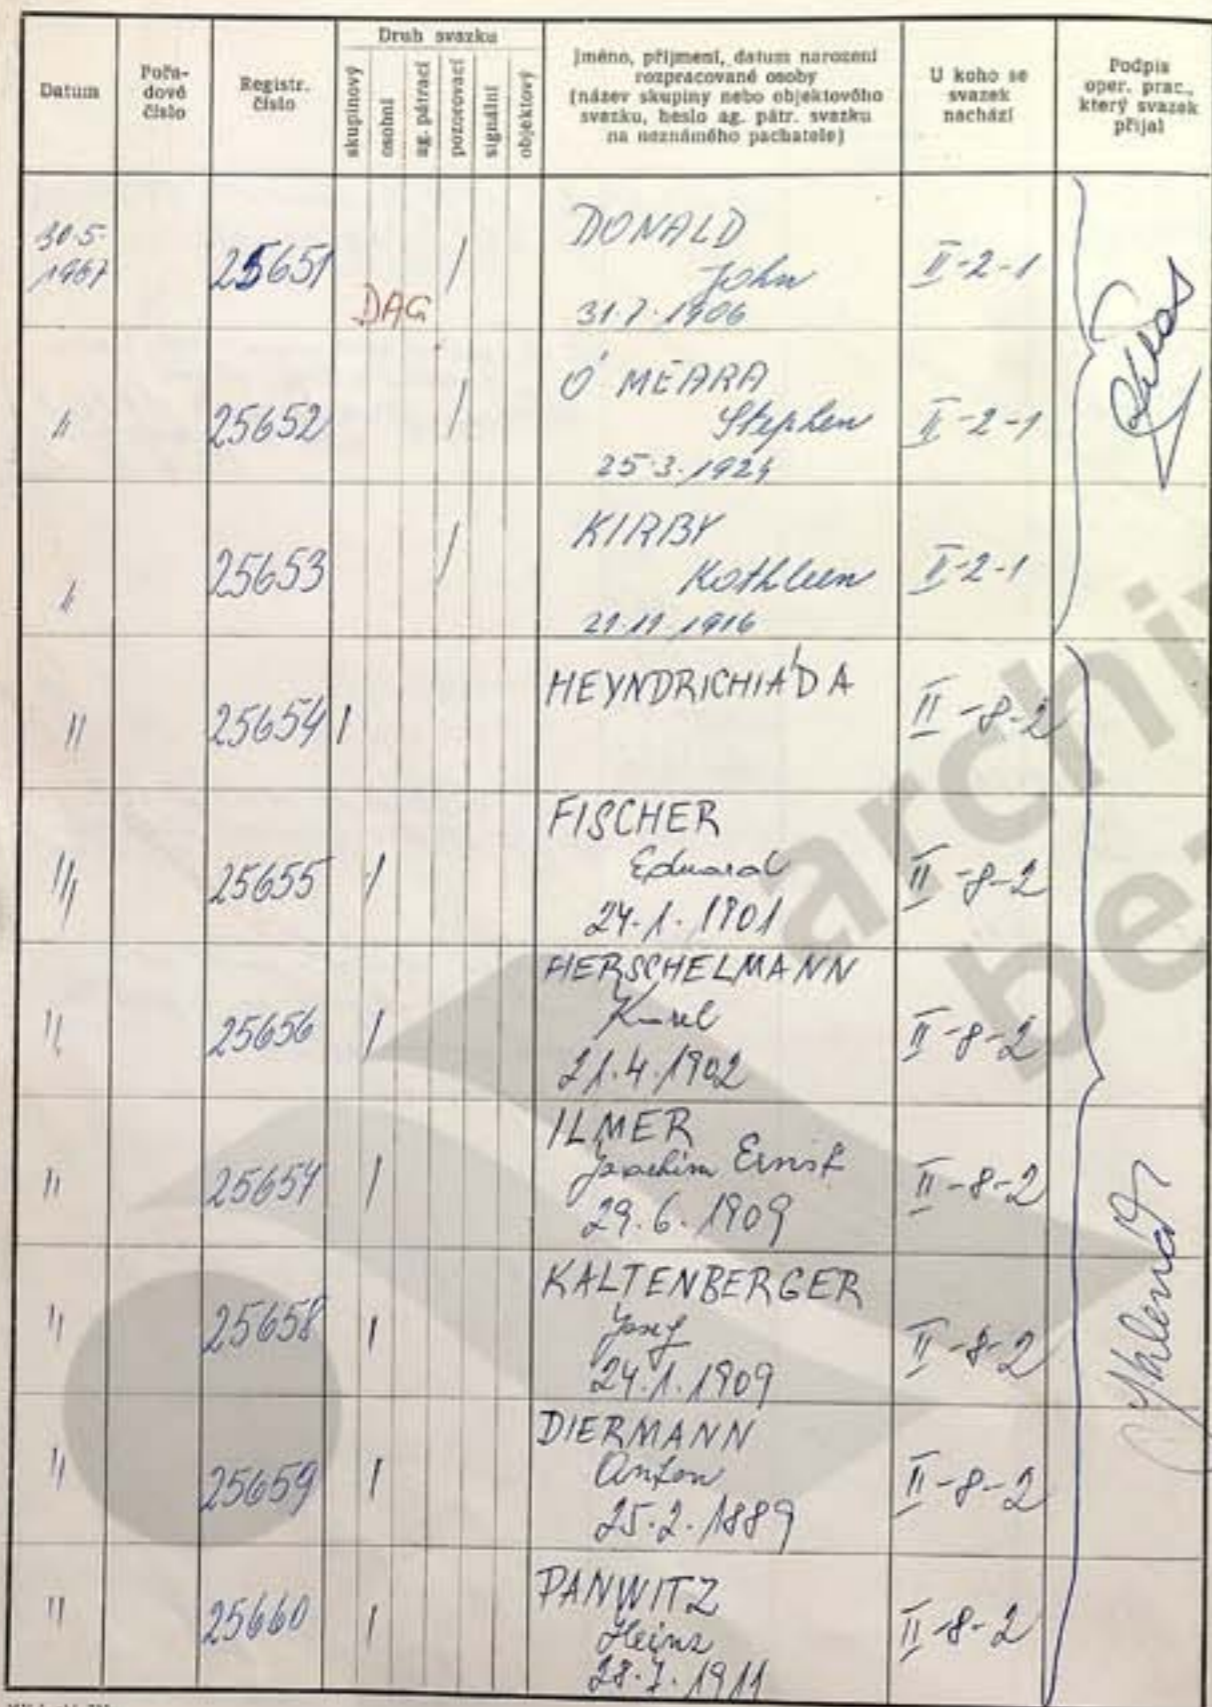 Datum
Pořa-
dové
číslo
Registr.
číslo
Druh svazku
skupinový
osobní
ag. pátrací
pozorovací
signální
objektový
Jméno, příjmení, datum narození
rozpracované osoby
(název skupiny nebo objektového
svazku, heslo ag. pátr. svazku
na neznámého pachatele)
U koho se
svazek
nachází
Podpis
oper. prac.,
který svazek
přijal
30.5.
1967
25651
DAG
/
DONALD
John
31.7.1906
II-2-1
"
25652
/
O'MEARA
Stephen
25.3.1924
II-2-1
"
25653
/
KIRBY
Kathleen
21.11.1916
II-2-1
"
25654
/
HEYNDRICHIÁDA
II-8-2
"
25655
/
FISCHER
Eduard
24.1.1901
II-8-2
"
25656
/
HERSCHELMANN
Karel
21.4.1902
II-8-2
"
25657
/
ILMER
Joachim Ernst
29.6.1909
II-8-2
"
25658
/
KALTENBERGER
Josef
24.1.1909
II-8-2
"
25659
/
DIERMANN
Anton
25.2.1889
II-8-2
"
25660
/
PANWITZ
Heinz
28.7.1911
II-8-2